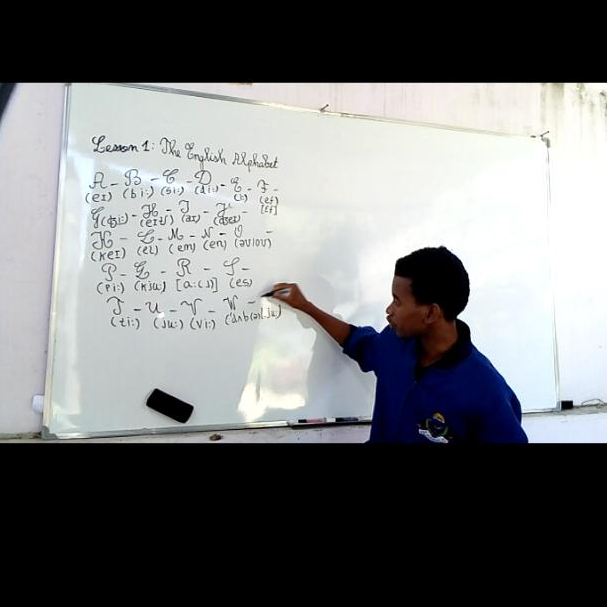 Lesson 1: The English Alphabet
A - B - C - D - E - F -
(eɪ) (bi:) (si:) (di:) (i:) (ef)
G(ʤi:) - H - I - J - [ef]
(eɪtʃ) (aɪ) (ʤeɪ)
K - L - M - N - O -
(keɪ) (el) (em) (en) (əʊ)(oʊ)
P - Q - R - S -
(pi:) (kju:) [ɑ:(r)] (es)
T - U - V - W -
(ti:) (ju:) (vi:) ('dʌb(ə)l ju:)